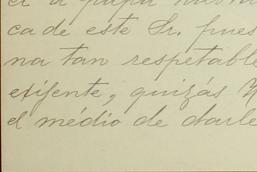 cade este Sr. pues
na tan respetable
exijente, quizás
el médio de darle